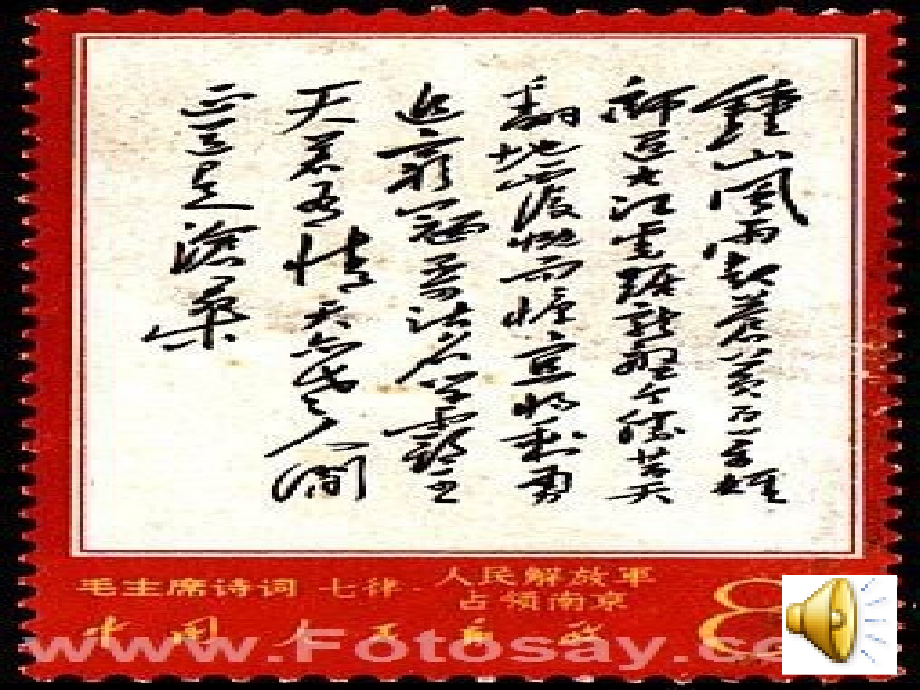 鍾山風雨起蒼黃百万雄
師過大江虎踞龍盤今勝昔天
翻地覆慨而慷宜將剩勇
追窮寇不可沽名學霸王
天若有情天亦老人間
正道是滄桑
毛主席诗词 七律·人民解放軍
占領南京
中国人民邮政 8
www.Fotosay.co